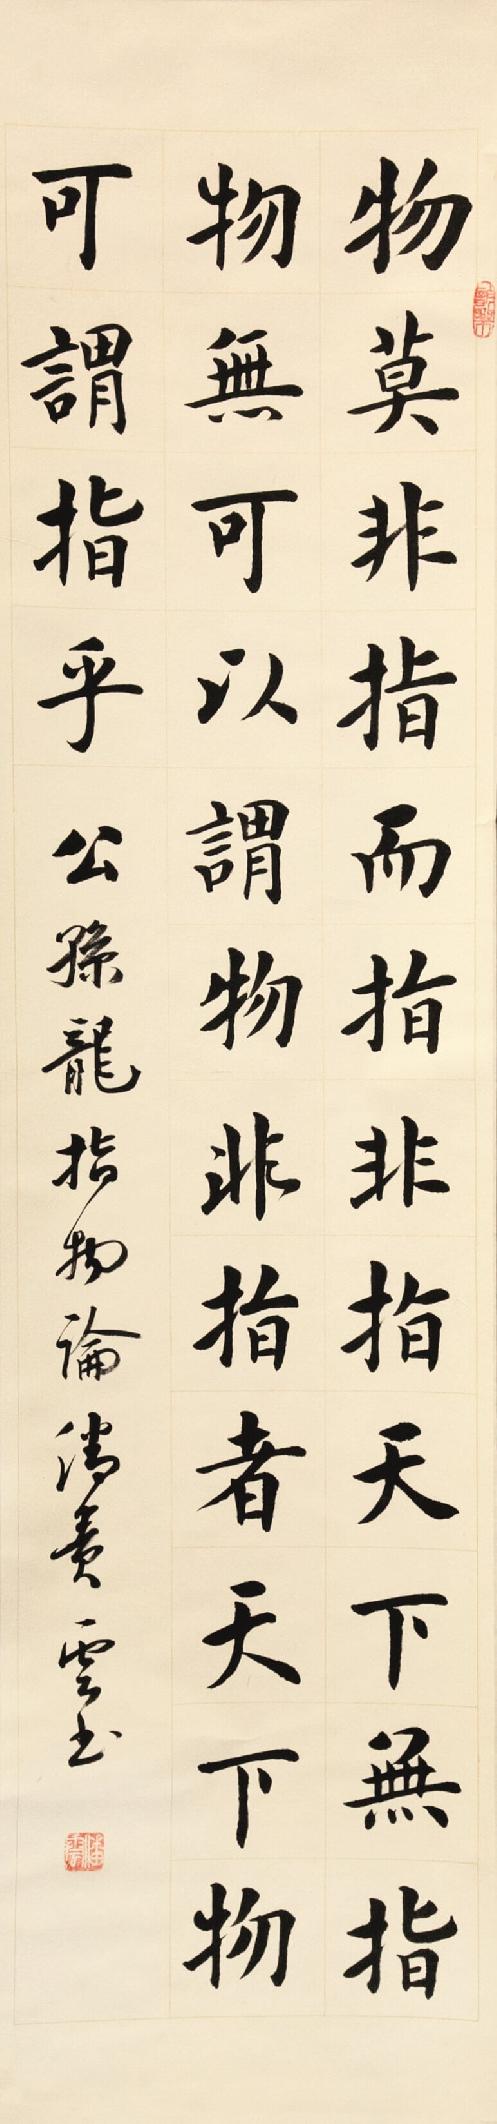 物莫非指而指非指天下無指
物無可以謂物非指者天下物
可謂指乎 公孫龍指物論 潘貴雲书